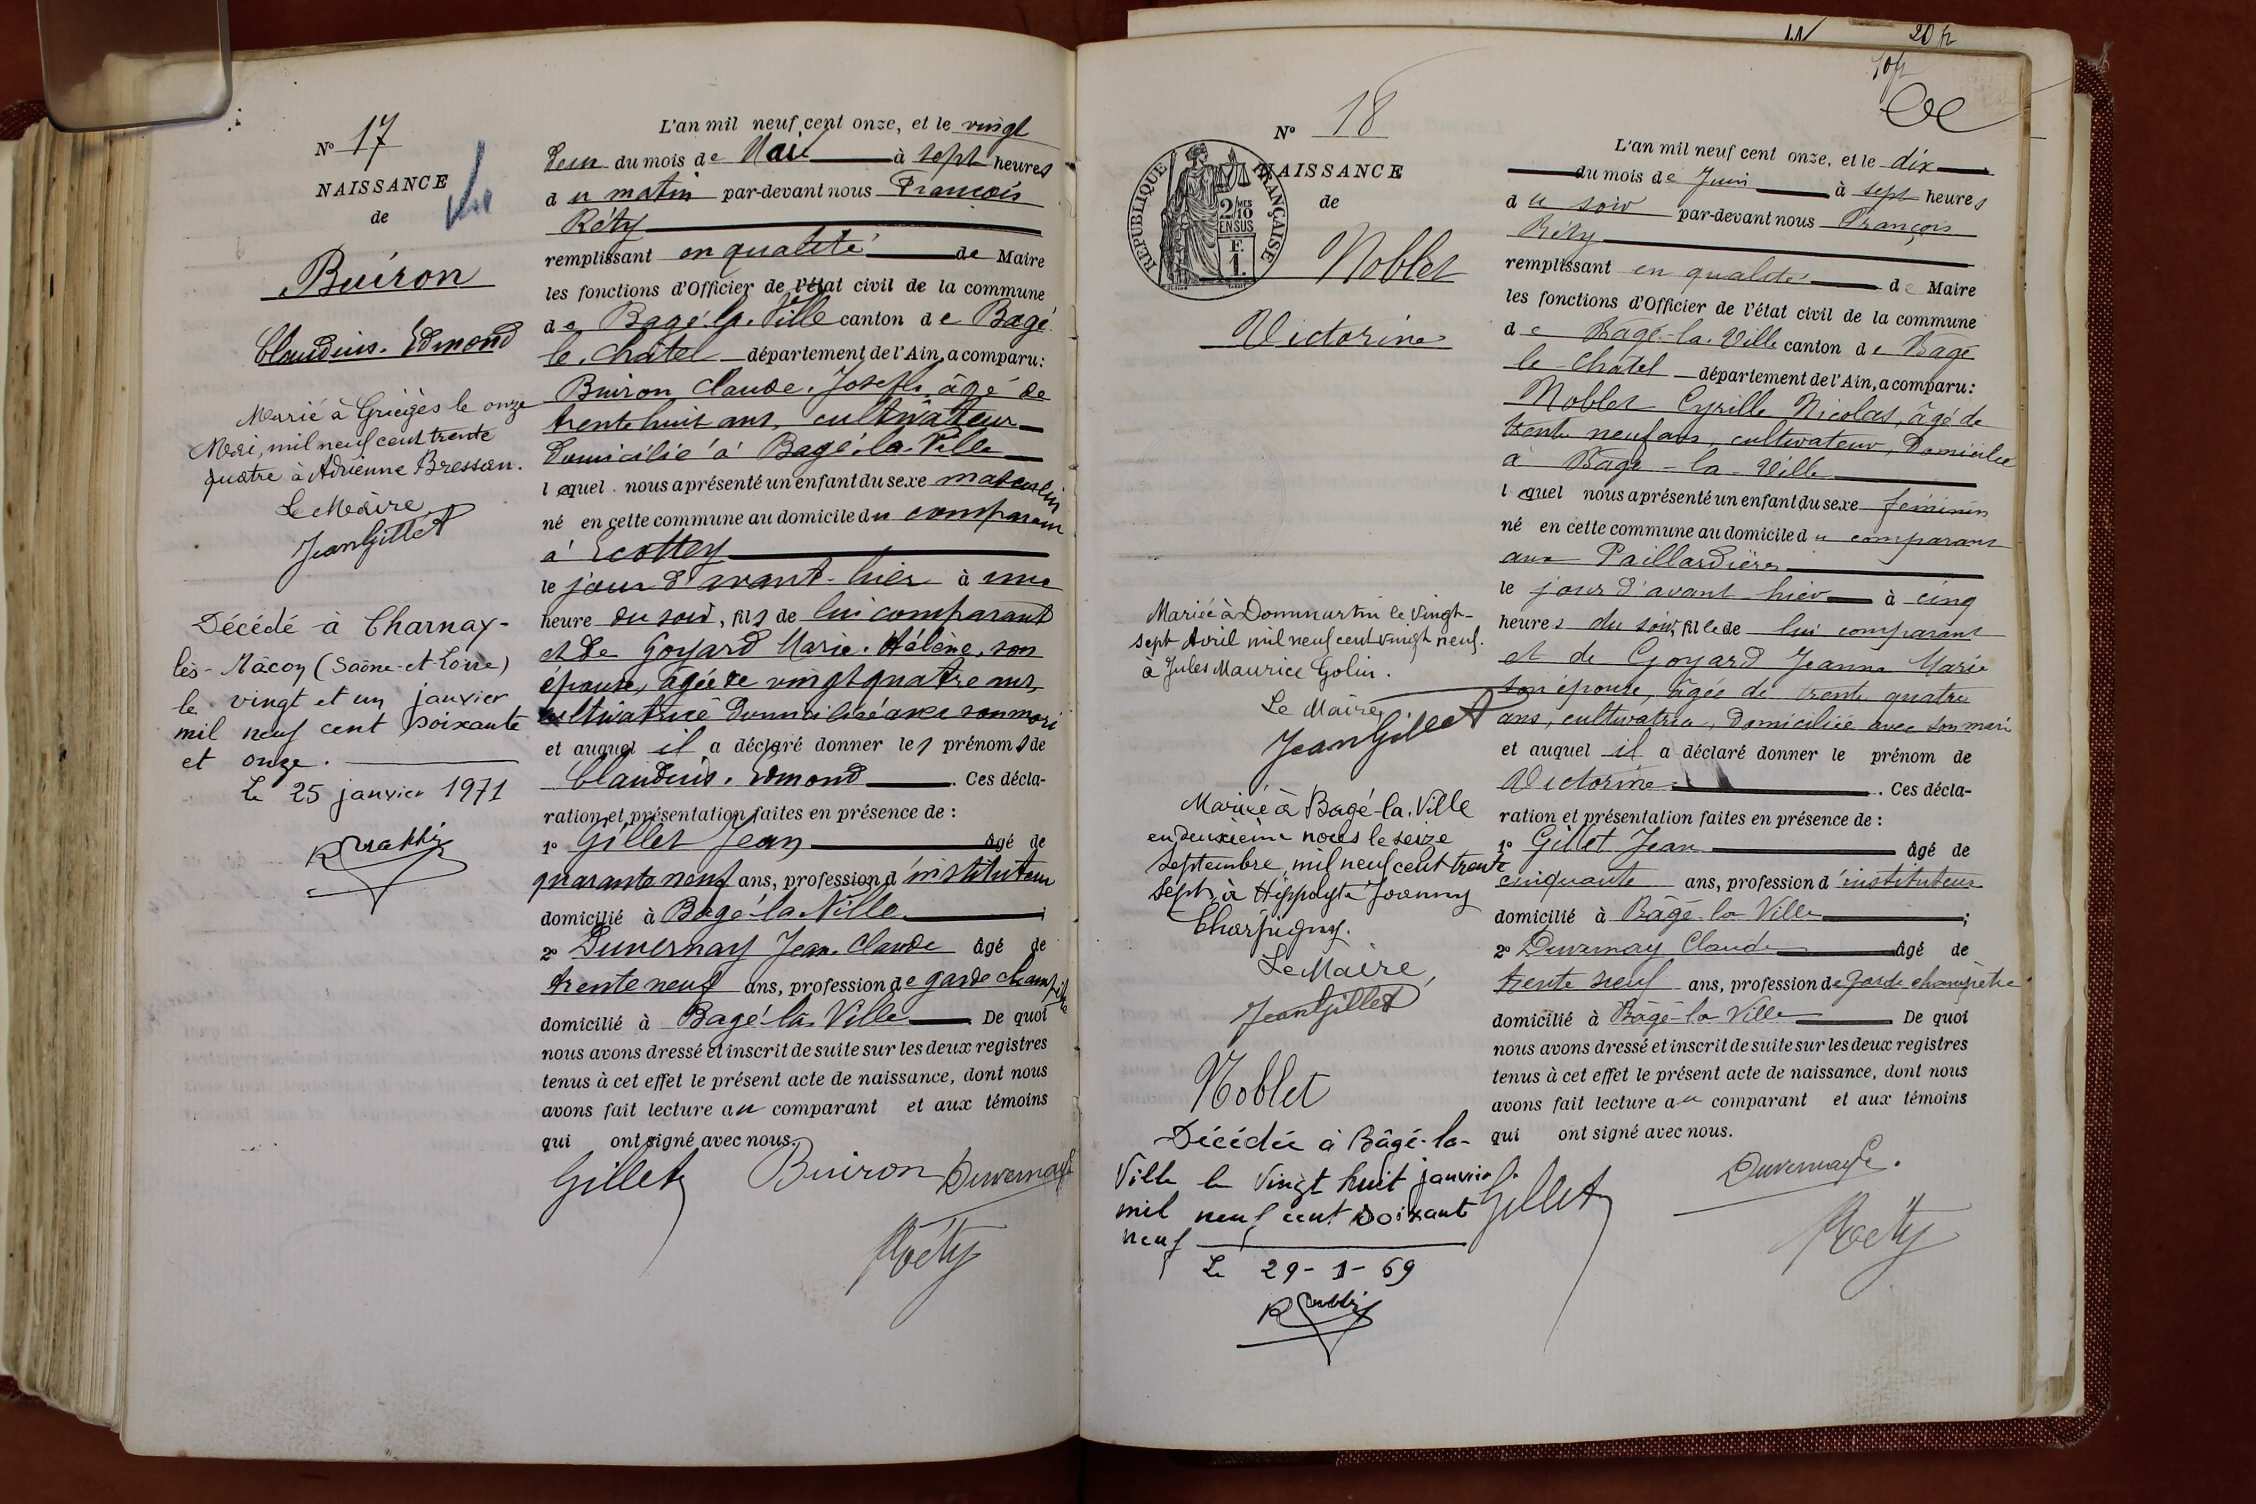 N° 17
NAISSANCE
de
Buiron
Claudius. Edmond
Marié à Grièges le onze
Mai, mil neuf cent trente
quatre à Adrienne Bressan.
Le Maire
Jean Gillet
Décédé à Charnay-
lès-Mâcon (Saône-et-Loire)
le vingt et un janvier
mil neuf cent soixante
et onze.
Le 25 janvier 1971
L'an mil neuf cent onze, et le vingt
deux du mois de Mai à sept heures
du matin par-devant nous François
Réty
remplissant en qualité de Maire
les fonctions d'Officier de l'état civil de la commune
de Bagé-la-Ville canton de Bagé
le-Châtel département de l'Ain, a comparu:
Buiron Claude. Joseph, âgé de
trente huit ans, cultivateur
domicilié à Bagé-la-Ville
lequel nous a présenté un enfant du sexe masculin
né en cette commune au domicile du comparant
à Ecottey
le jour d'avant-hier à une
heure du soir, fils de lui comparant
et de Goyard Marie. Hélène, son
épouse, âgée de vingt quatre ans,
cultivatrice domiciliée avec son mari
et auquel il a déclaré donner les prénoms de
Claudius. Edmond. Ces décla-
ration et présentation faites en présence de :
1° Gillet Jean âgé de
quarante neuf ans, profession d'instituteur
domicilié à Bagé-la-Ville ;
2° Duvernay Jean-Claude âgé de
trente neuf ans, profession de garde champêtre
domicilié à Bagé-la-Ville De quoi
nous avons dressé et inscrit de suite sur les deux registres
tenus à cet effet le présent acte de naissance, dont nous
avons fait lecture au comparant et aux témoins
qui ont signé avec nous.
Gillet Buiron Duvernay
Réty
20 fr
10 fr
N° 18
NAISSANCE
de
RÉPUBLIQUE FRANÇAISE
2/10 MES
EN SUS
F.
1.
Noblet
Victorine
Mariée à Dommartin le vingt-
sept Avril mil neuf cent vingt neuf.
à Jules Maurice Golin.
Le Maire,
Jean Gillet
Mariée à Bagé-la-Ville
en deuxième noces le seize
septembre mil neuf cent trente
sept, à Hippolyte Joanny
Charpigny.
Le Maire,
Jean Gillet
Noblet
Décédée à Bâgé-la-
Ville le vingt huit janvier
mil neuf cent soixante
neuf
Le 29-1-69
L'an mil neuf cent onze, et le dix
du mois de Juin à sept heures
du soir par-devant nous François
Réty
remplissant en qualité de Maire
les fonctions d'Officier de l'état civil de la commune
de Bagé-la-Ville canton de Bagé
le-Châtel département de l'Ain, a comparu:
Noblet Cyrille Nicolas, âgé de
trente neuf ans, cultivateur, domicilié
à Bagé-la-Ville
lequel nous a présenté un enfant du sexe féminin
né en cette commune au domicile du comparant
aux Paillardières
le jour d'avant hier à cinq
heures du soir, fille de lui comparant
et de Goyard Jeanne Marie
son épouse, âgée de trente quatre
ans, cultivatrice, domiciliée avec son mari
et auquel il a déclaré donner le prénom de
Victorine. Ces décla-
ration et présentation faites en présence de :
1° Gillet Jean âgé de
cinquante ans, profession d'instituteur
domicilié à Bâgé-la-Ville ;
2° Duvernay Claude âgé de
trente neuf ans, profession de garde champêtre
domicilié à Bâgé-la-Ville De quoi
nous avons dressé et inscrit de suite sur les deux registres
tenus à cet effet le présent acte de naissance, dont nous
avons fait lecture au comparant et aux témoins
qui ont signé avec nous.
Gillet Duvernay C.
Réty